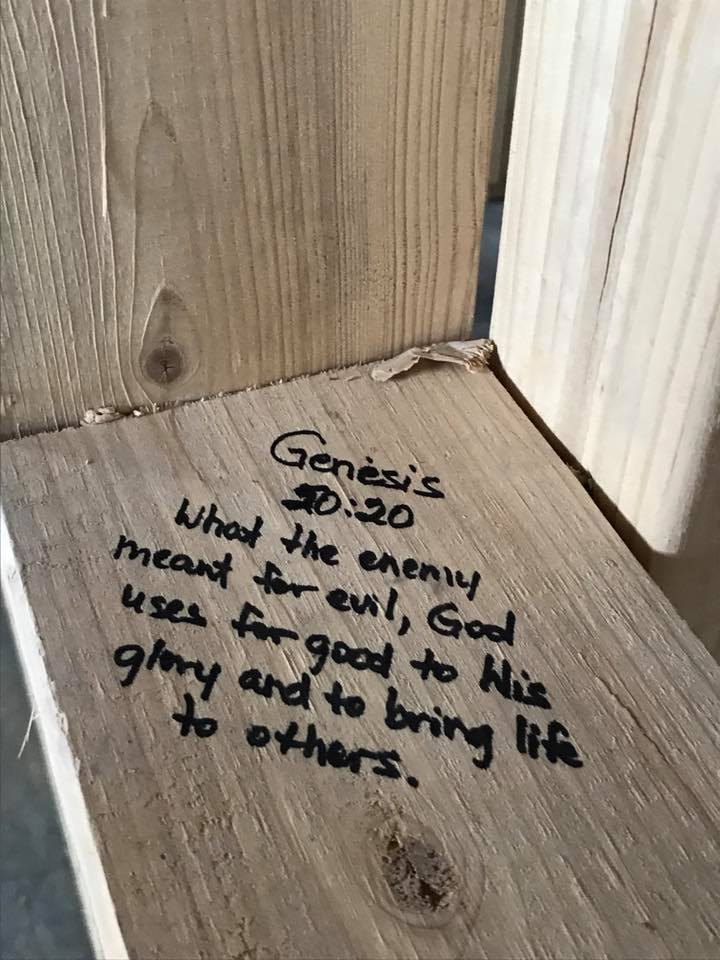 Genesis
50:20
What the enemy
meant for evil, God
uses for good to His
glory and to bring life
to others.